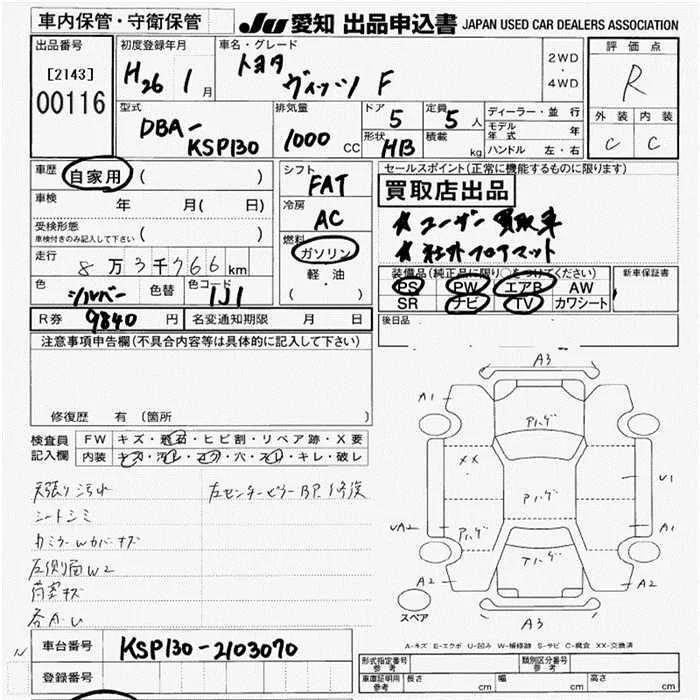 車内保管・守衛保管
JU 愛知 出品申込書 JAPAN USED CAR DEALERS ASSOCIATION
出品番号
[2143]
00116
初度登録年月
H26 1月
車名・グレード
トヨタ
ヴィッツ F
2WD
・
4WD
評価点
R
外装 内装
C C
型式
DBA-
KSP130
排気量
1000 CC
ドア 5
定員 5人
形状 HB
積載 kg
ディーラー・並行
モデル年式 年
ハンドル 左・右
車歴 自家用 ( )
車検 年 月( 日)
受検形態
車検付きのみ記入して下さい ( )
走行 8万3千766km
色 シルバー 色替 色コード 1J1
シフト
FAT
冷房
AC
燃料
ガソリン
軽・油
( )
セールスポイント(正常に機能するものに限ります)
買取店出品
★ユーザー買取車
★社外フロアマット
装備品(純正品に限り○をつけてください)
新車保証書
PS PW エアB AW
SR ナビ TV カワシート
後日品
R券 9840円 名変通知期限 月 日
注意事項申告欄(不具合内容等は具体的に記入して下さい)
修復歴 有 (箇所
検査員
記入欄
FW キズ・飛石・ヒビ割・リペア跡・X要
内装 キズ・汚レ・コゲ・穴・スレ・キレ・破レ
天張り汚れ
左センターピラーBP.1修復
シートシミ
カミラーWカバーキズ
左側面W2
荷室キズ
各A.U
A3
A1
パハゲ
XX
パハゲ
U1
UA2
パハゲ
A1
A2
パハゲ
A2
A3
スペア
A-キズ E-エクボ U-凹み W-補修跡 S-サビ C-腐食 XX-交換済
車台番号 KSP130-2103070
登録番号
形式指定番号
参考
類別区分番号
参考
車庫証明用
参考
長さ cm 幅 cm 高さ cm